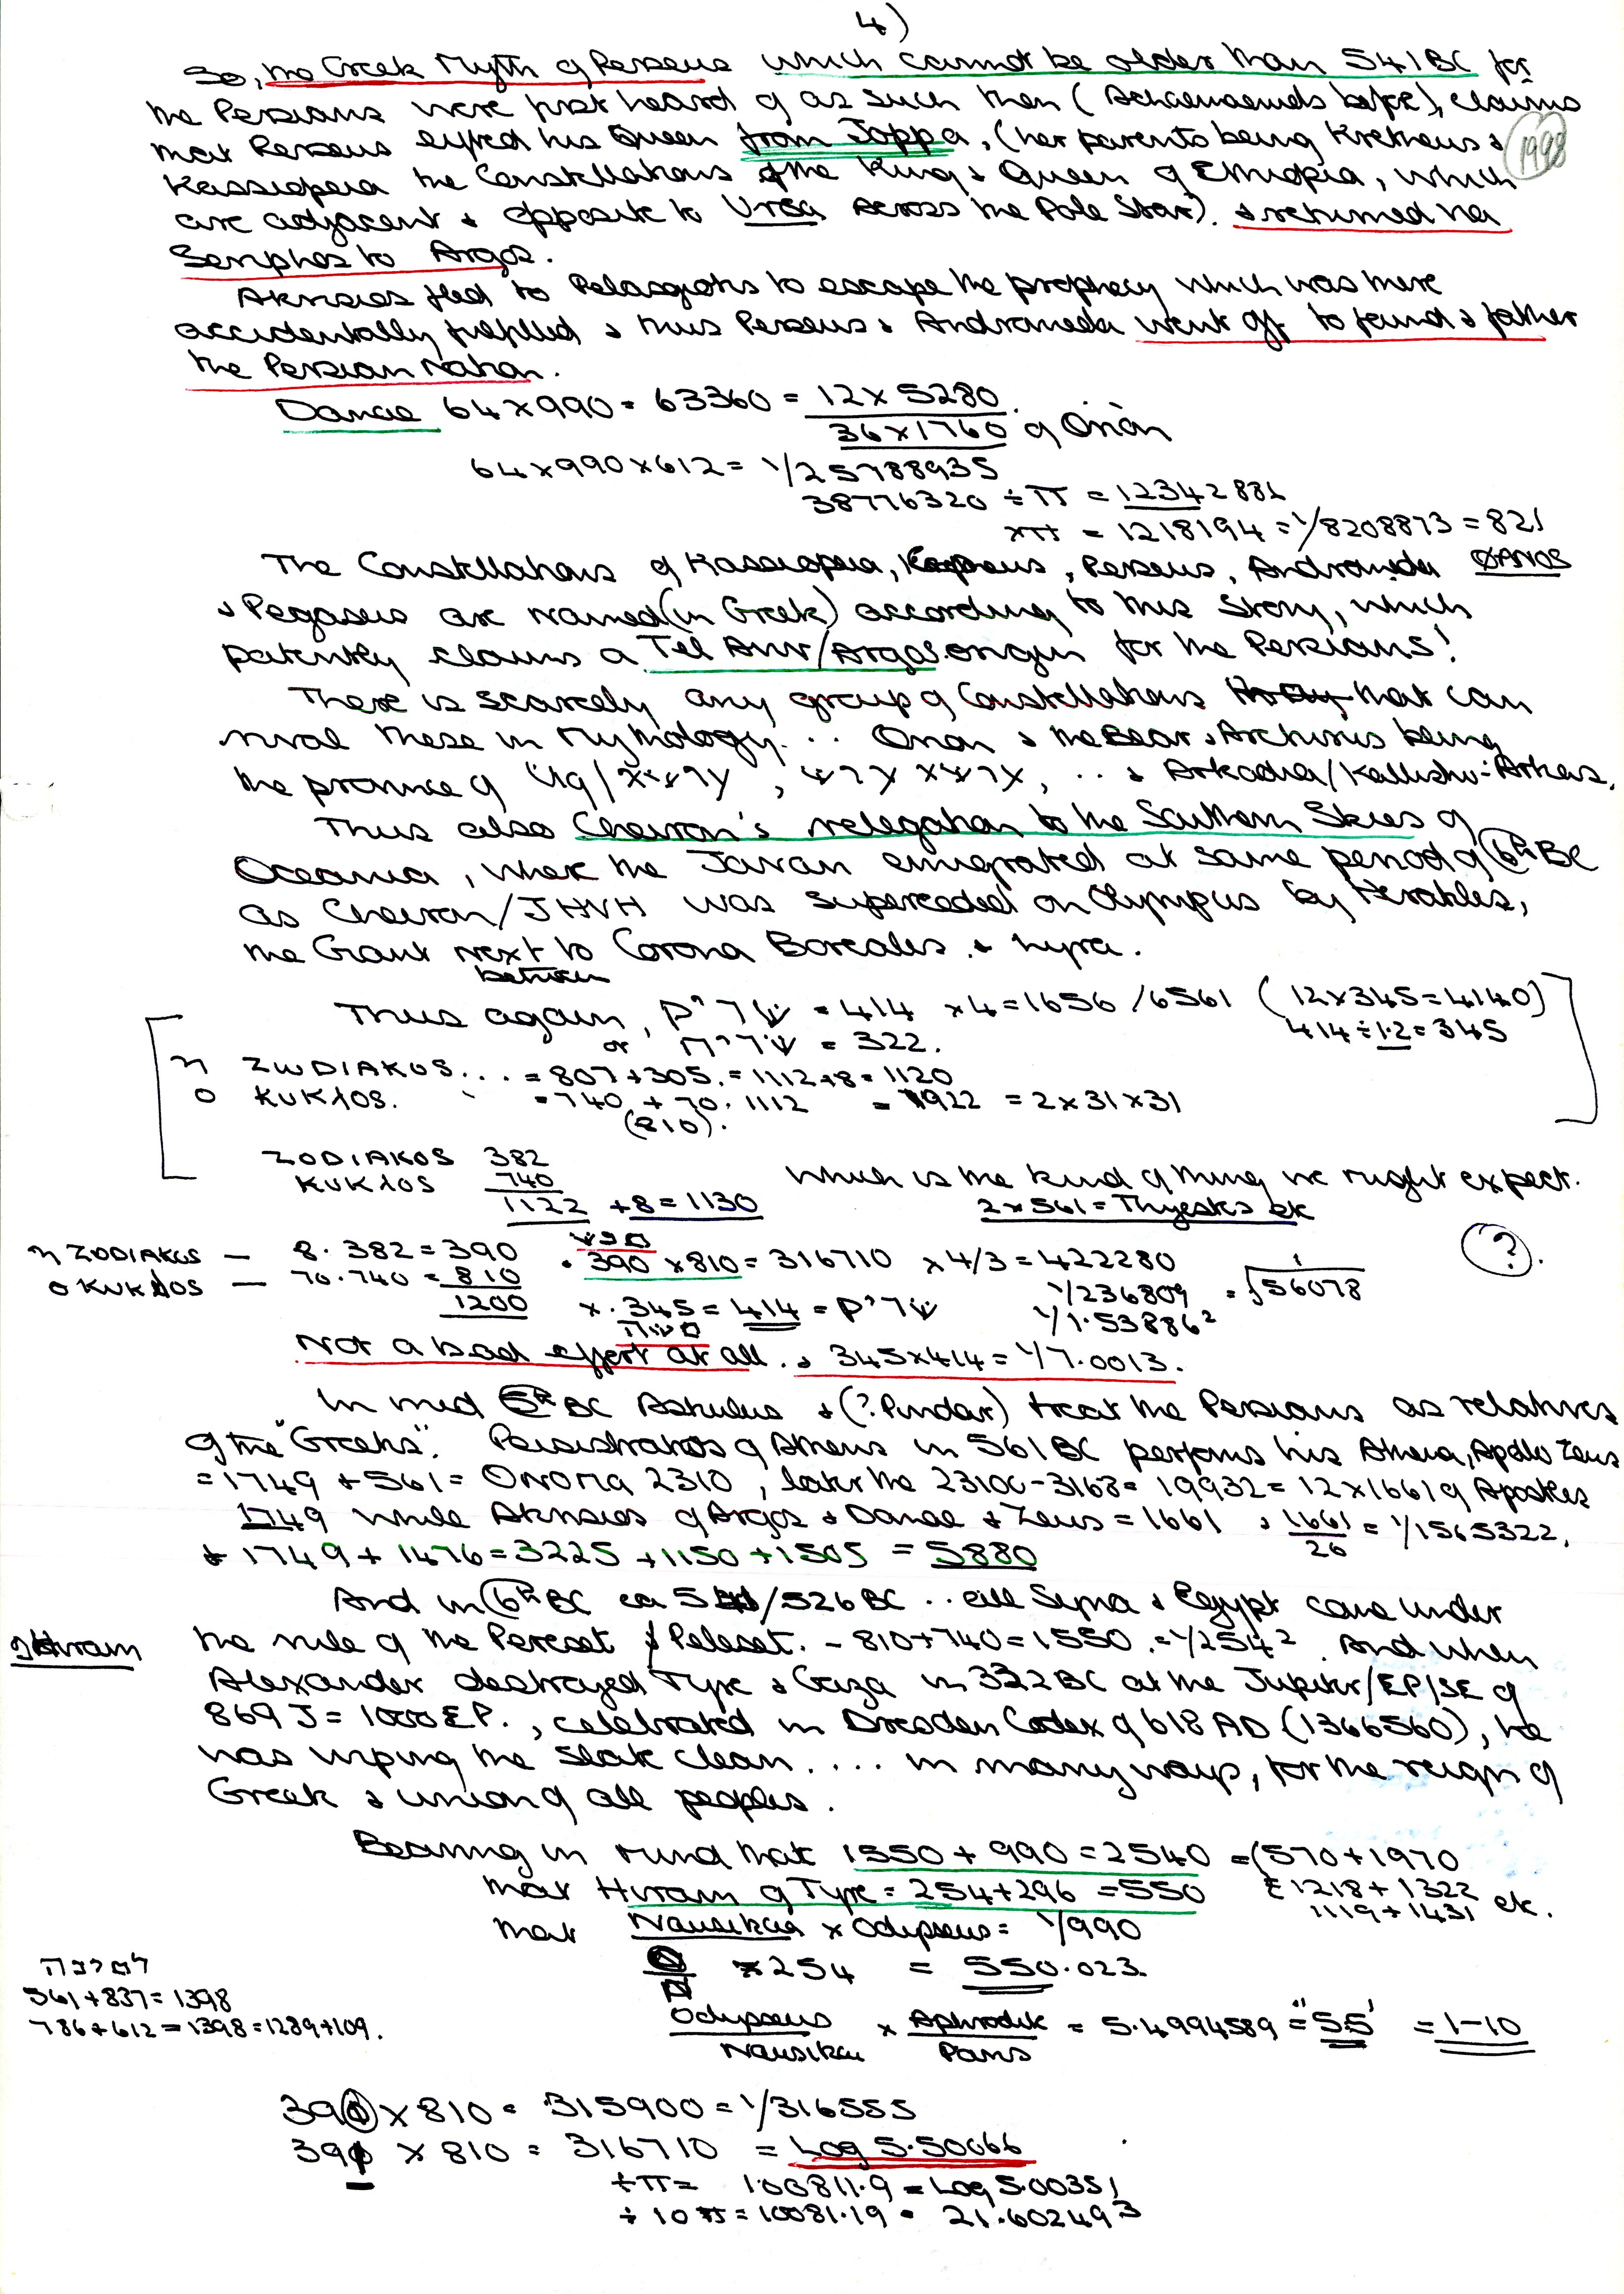 4)
So, the Greek Myth of Perseus which cannot be older than 541 BC for
the Persians were first heard of as such then (Achaemaenids before), claims
that Perseus eyfed his Queen from Joppa, (her parents being Kretheus &
1998
Kassiopeia the Constellations of the King & Queen of Ethiopia, which
are adjacent & opposite to Ursa Across the Pole Star). & returned via
Seriphos to Argos.
Akrisios fled to Pelasgiotis to escape the prophecy which was there
accidentally fulfilled & thus Perseus & Andromeda went off to found & father
the Persian Nation.
Danae 64 x 990 = 63360 = 12 x 5280
36 x 1760 of Orion
64 x 990 x 612 = 1/25788935
38776320 ÷ π = 12342881
xπ = 1218194 = 1/8208873 = 821
The Constellations of Kassiopeia, Kepheus, Perseus, Andromeda
& Pegasus are named (in Greek) according to this Story, which
patently claims a Tel Aviv/Argos origin for the Persians!
There is scarcely any group of Constellations that can
rival these in Mythology... Orion & the Bear & Arcturus being
the province of , .. & Arkadia/Kallisto - Arkas.
Thus also Cheiron's relegation to the Southern Skies of
Oceania, where the Javan emigrated at same period of 6th BC
as Cheiron/JHVH was superceded on Olympus by Herakles,
the Giant next to Corona Borealis & Lyra.
between
Thus again, = 414 x 4 = 1656 / 6561 (12 x 345 = 4140)
or = 322. 414 ÷ 1.2 = 345
η ZWDIAKOS... = 807 + 305. = 1112 + 8 = 1120
O KUKΛOS. = 740 + 70. 1112 = 1922 = 2 x 31 x 31
(810).
ZODIAKOS 382
KUKΛOS 740 Which is the kind of thing we might expect.
1122 + 8 = 1130 2 x 561 = Thyestes etc
η ZODIAKOS — 8. 382 = 390 . 390 x 810 = 316710 x 4/3 = 422280 (?).
O KUKΛOS — 70. 740 = 810 1/236809 = √56078
1200 x .345 = 414 = 1/1.53886²
Not a bad effort at all. & 345 x 414 = 1/7.0013.
In mid 5th BC Askulus & (? Pindar) treat the Persians as relatives
of the "Greeks". Peisistratos of Athens in 561 BC performs his Athena, Apollo Zeus
= 1749 + 561 = Onoma 2310, later the 23100 - 3168 = 19932 = 12 x 1661 of Apostles
1749 while Akrisios of Argos & Danae & Zeus = 1661 & 1661/26 = 1/1565322.
& 1749 + 1476 = 3225 + 1150 + 1505 = 5880
And in 6th BC ca /526 BC .. all Syria & Egypt came under
Hiram the rule of the Pereset / Peleset. - 810 + 740 = 1550. = 1/254². And when
Alexander destroyed Tyre & Gaza in 332 BC at the Jupiter/EP/SE of
869 J = 1000 EP., celebrated in Dresden Codex of 618 AD (1366560), he
was wiping the slate clean.... in many ways, for the reign of
Greek & union of all peoples.
Bearing in mind that 1550 + 990 = 2540 = (570 + 1970
that Hiram of Tyre = 254 + 296 = 550 & 1218 + 1322
1119 + 1431 etc.
that Nausikaa x Odysseus = 1/990
O/N x 254 = 550.023.
למרבה
561 + 837 = 1398
786 + 612 = 1398 = 1289 + 109.
Odysseus/Nausikaa x Aphrodite/Paris = 5.4994589 = "5.5' = 1 - 10
390 x 810 = 315900 = 1/316555
391 x 810 = 316710 = Log 5.50066
÷ π = 100811.9 = Log 5.00351
÷ 10π = 10081.19 = 21.602493